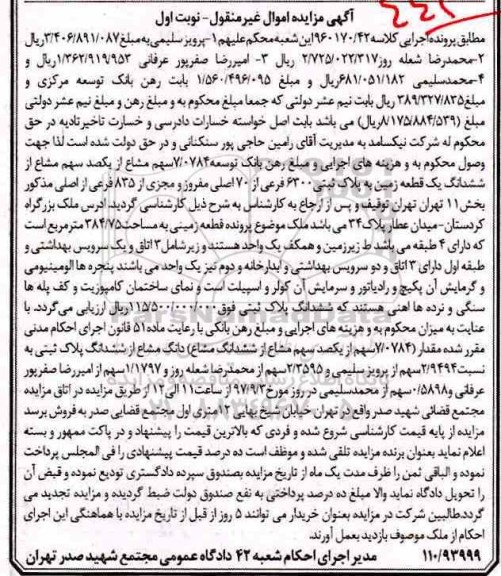 ۲۲۲
آگهی مزایده اموال غیرمنقول - نوبت اول
مطابق پرونده اجرایی کلاسه ۹۶۰۱۷۰/۴۲ این شعبه محکم علیهم ۱-پرویز سلیمی به مبلغ ۳/۴۰۶/۸۹۱/۰۸۷ ریال
۲-محمدرضا شعله روز ۲/۷۲۵/۰۲۲/۳۱۷ ریال ۳- امیررضا صفرپور عرفانی ۱/۳۶۲/۹۱۹/۹۵۳ ریال و
۴-محمدسلیمی ۶۸۱/۰۵۱/۱۸۲ ریال و مبلغ ۱/۵۶۰/۴۹۶/۰۹۵ بابت رهن بانک توسعه مرکزی و
مبلغ ۳۸۹/۳۲۷/۸۳۵ ریال بابت نیم عشر دولتی که جمعا مبلغ محکوم به و مبلغ رهن و مبلغ نیم عشر دولتی
(مبلغ ۸/۱۷۵/۸۸۴/۵۳۹ ریال) می باشد بابت اصل خواسته خسارات دادرسی و خسارت تاخیر تادیه در حق
محکوم له شرکت نیکسامد به مدیریت آقای رامین حاجی پور سنکتانی و در حق دولت شده است لذا جهت
وصول محکوم به و هزینه های اجرایی و مبلغ رهن بانک توسعه ۷/۰۷۸۴ سهم مشاع از یکصد سهم مشاع از
ششدانگ یک قطعه زمین به پلاک ثبتی ۶۳۰۰ فرعی از ۷۰ اصلی مفروز و مجزی از ۸۳۵ فرعی از اصلی مذکور
بخش ۱۱ تهران توقیف و پس از ارجاع به کارشناس به شرح ذیل کارشناسی گردید. آدرس ملک بزرگراه
کردستان-میدان عطار پلاک ۳۴ می باشد ملک موضوع پرونده قطعه زمینی به مساحت ۳۸۴/۷۵ مترمربع است
که دارای ۴ طبقه می باشد ط زیرزمین و همکف یک واحد هستند و زیر شامل ۳ اتاق و یک سرویس بهداشتی و
طبقه اول دارای ۳ اتاق و دو سرویس بهداشتی و آبدارخانه و دوم نیز یک واحد می باشند پنجره ها آلومینیومی
و گرمایش آن پکیج و رادیاتور و سرمایش آن کولر و اسپیلت است و نمای ساختمان کامپوزیت و کف پله ها
سنگی و نرده ها آهنی هستند که ششدانگ پلاک ثبتی فوق ۱۱۵/۵۰۰/۰۰۰/۰۰۰ ریال ارزیابی می گردد. با
عنایت به میزان محکوم به و هزینه های اجرایی و مبلغ رهن بانکی با رعایت ماده ۵۱ قانون اجرای احکام مدنی
مقرر شده مقدار (۷/۰۷۸۴ سهم از یکصد سهم مشاع از ششدانگ مشاع) دانگ مشاع از ششدانگ پلاک ثبتی به
نسبت ۲/۹۴۹۴ سهم از پرویز سلیمی و ۲/۳۵۹۵ سهم از محمدرضا شعله روز و ۱/۱۷۹۷ سهم از امیررضا صفرپور
عرفانی و ۰/۵۸۹۸ سهم از محمدسلیمی در روز مورخ ۹۷/۹/۳ از ساعت ۱۱ الی ۱۲ از طریق مزایده در اتاق مزایده
مجتمع قضائی شهید صدر واقع در تهران خیابان شیخ بهایی ۱۲ متری اول مجتمع قضایی صدر به فروش برسد
مزایده از پایه قیمت کارشناسی شروع شده و فردی که بالاترین قیمت را پیشنهاد و در پاکت ممهور و بسته
اعلام نماید بعنوان برنده مزایده تلقی شده و موظف است ده درصد قیمت پیشنهادی را فی المجلس پرداخت
نموده و الباقی ثمن را ظرف مدت یک ماه از تاریخ مزایده بصندوق سپرده دادگستری تودیع نموده و قبض آن
را تحویل دادگاه نماید والا مبلغ ده درصد پرداختی به نفع صندوق دولت ضبط گردیده و مزایده تجدید می
گردد. طالبین شرکت در مزایده بعنوان خریدار می توانند ۵ روز از قبل از تاریخ مزایده با هماهنگی این اجرای
احکام از ملک موصوف بازدید بعمل آورند.
۱۱۰/۹۳۹۹۹ مدیر اجرای احکام شعبه ۴۲ دادگاه عمومی مجتمع شهید صدر تهران